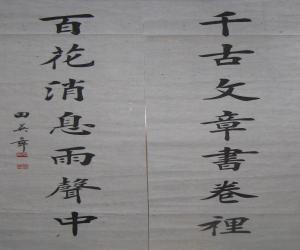 千古文章書卷裡
百花消息雨聲中
田英章